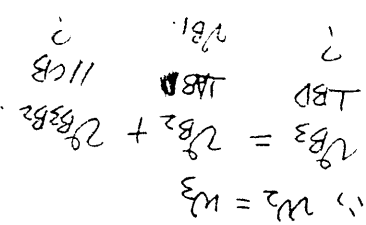 ∵ w₂ = w₃
v_B3 = v_B2 + v_B3B2
⊥BD ⊥AB //CB
? v_B1. ?